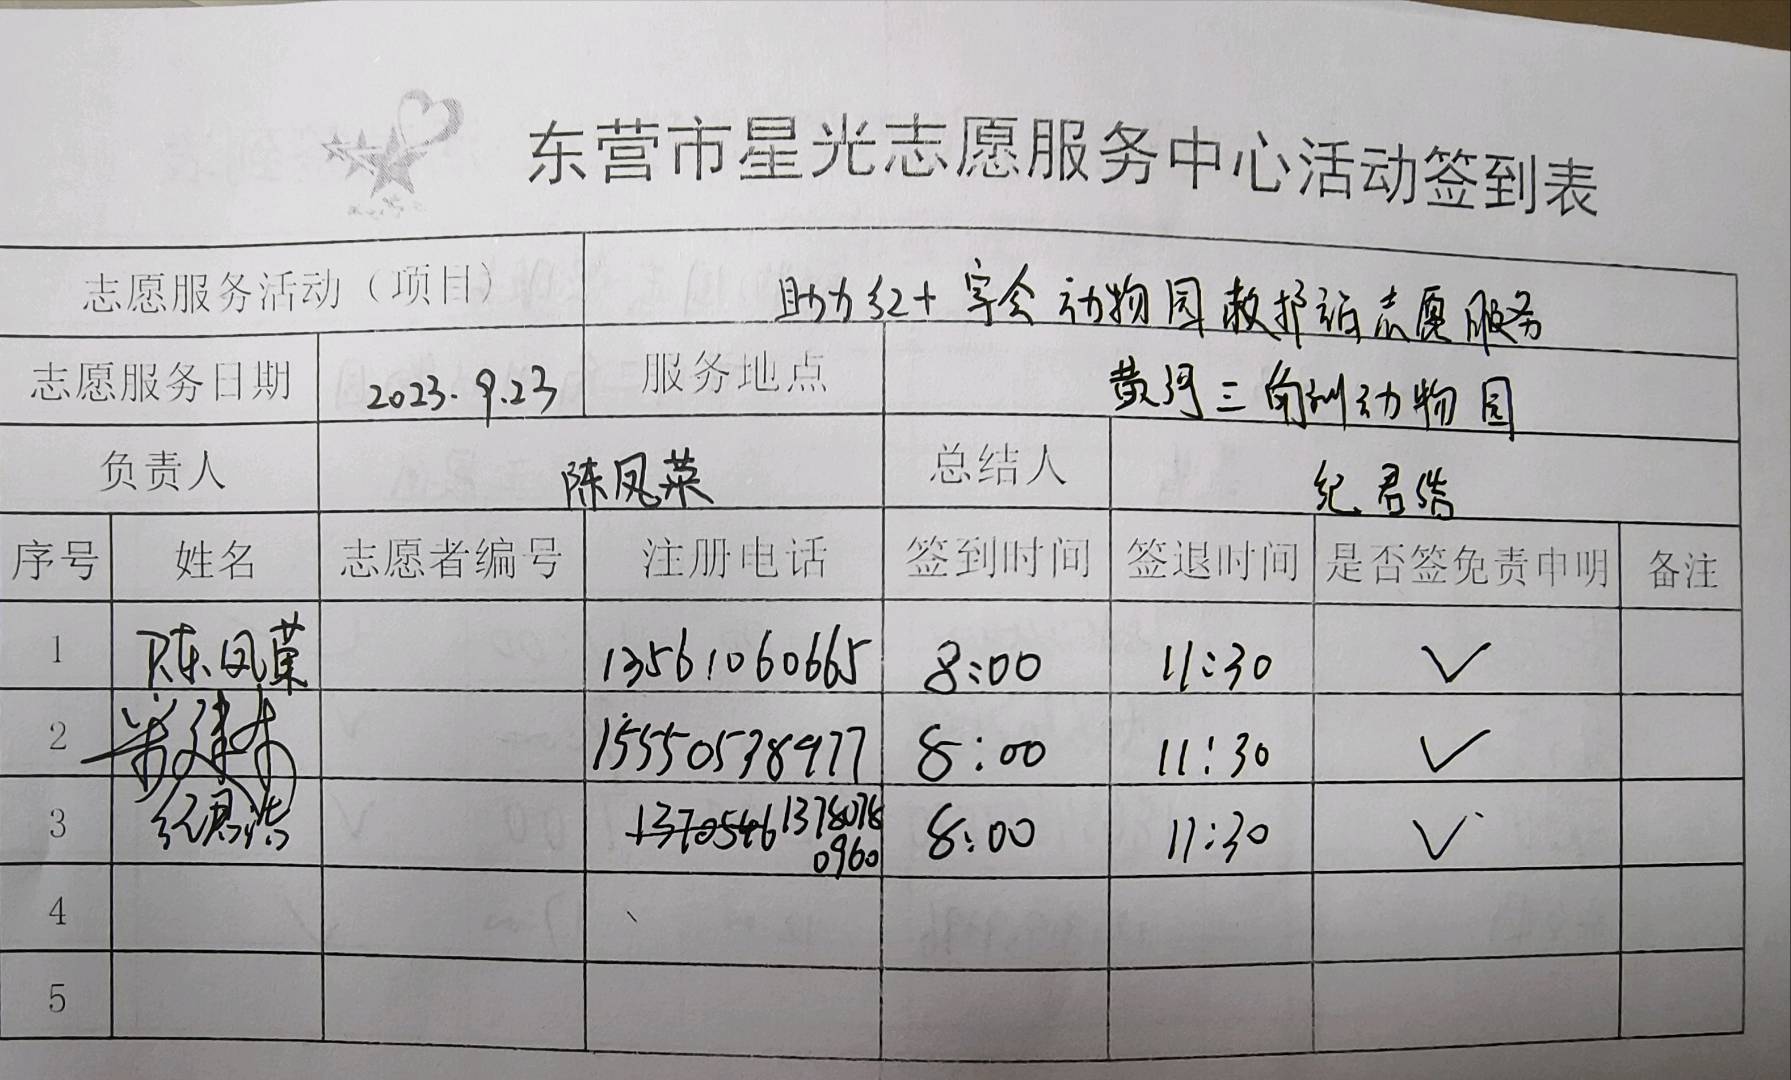 东营市星光志愿服务中心活动签到表
志愿服务活动（项目） 助力红十字会动物园救护站志愿服务
志愿服务日期 2023.9.23 服务地点 黄河三角洲动物园
负责人 陈凤菜 总结人 纪君浩
序号 姓名 志愿者编号 注册电话 签到时间 签退时间 是否签免责申明 备注
1 陈凤菜 13561060665 8:00 11:30 ✓
2 15550538977 8:00 11:30 ✓
3 纪君浩 1370546 1378078 8:00 11:30 ✓
0960
4
5